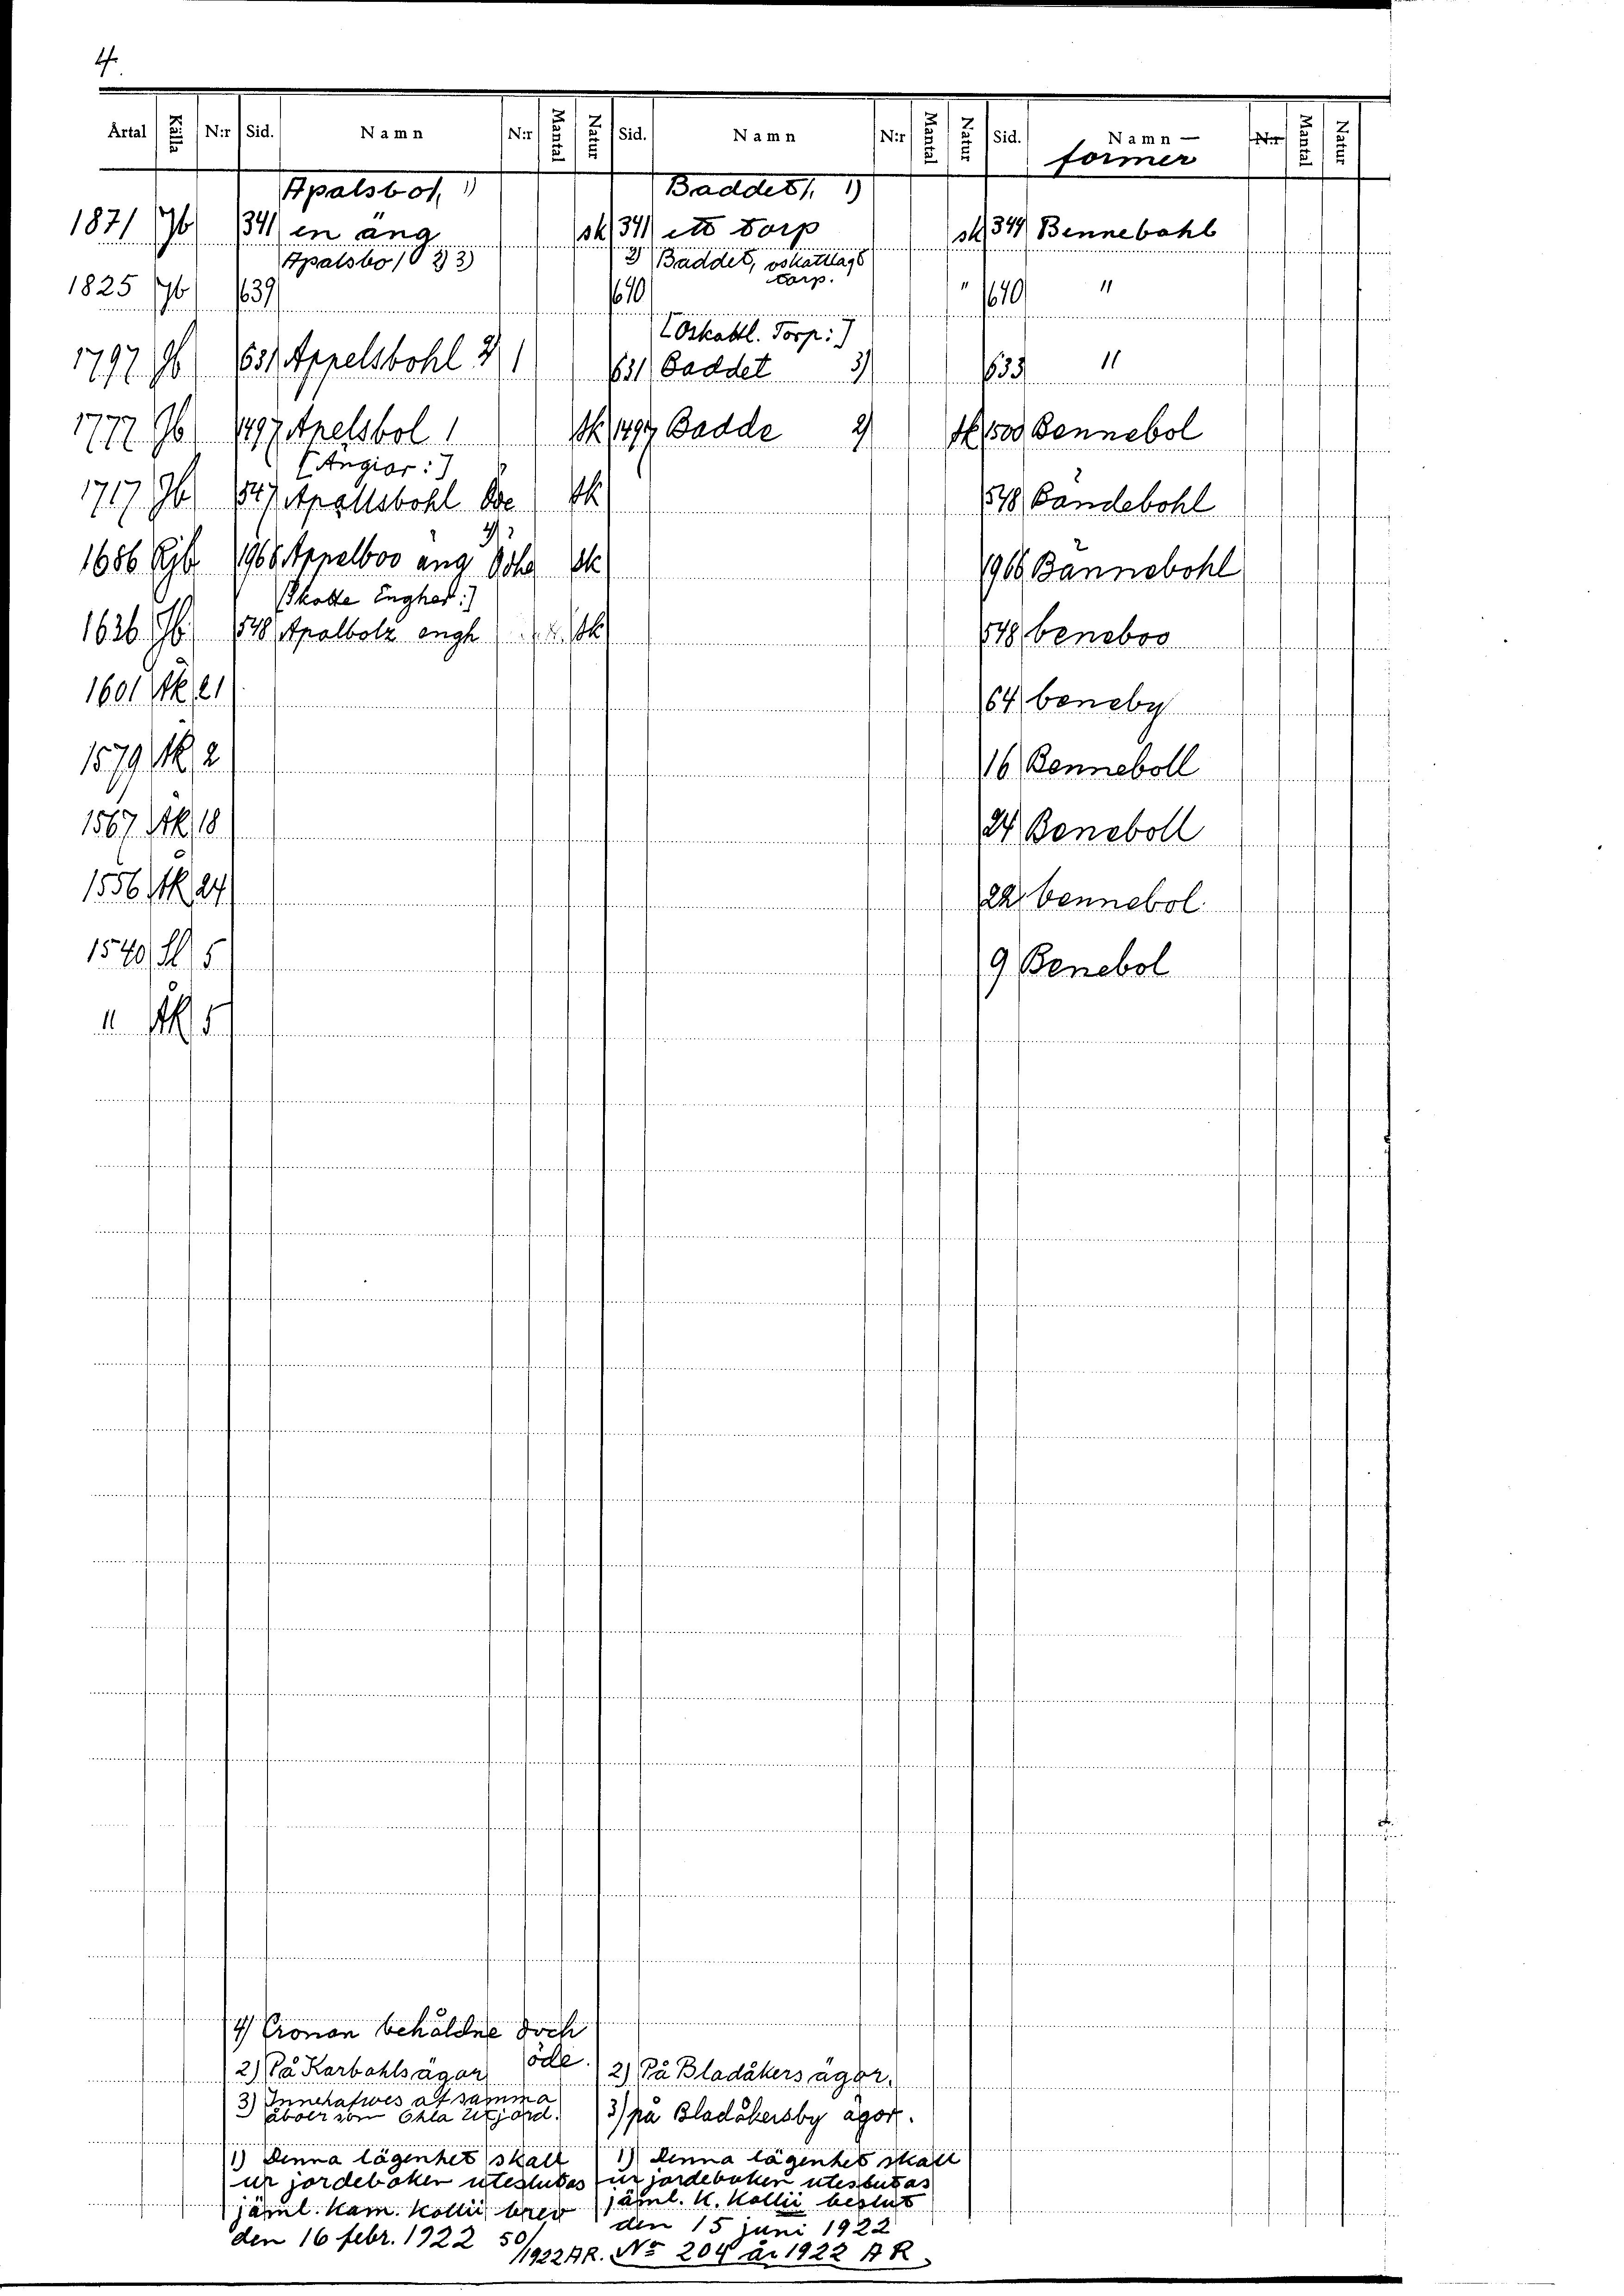 4.
Årtal Källa N:r Sid. Namn N:r Mantal Natur Sid. Namn N:r Mantal Natur Sid. Namn- N:r Mantal Natur
former
Apalsbo 1, 1) Baddet 1. 1)
1871 Jb 341 en äng sk 341 ett torp sk 344 Bennebohl
Apalsbo 1 2) 3) 2) Baddet, oskattlagt
torp.
1825 Jb 639 640 " 640 "
[Oskattl. Torp:]
1797 Jb 631 Appelsbohl 2) 1 631 Baddet 3) 633 "
1777 Jb 1497 Apelsbol 1 Sk 1497 Badde 2) sk 1500 Bennebol
[Ängior:]
1717 Jb 547 Apallsbohl Öde Sk 548 Bändebohl
4)
1686 Rjb 1968 Appelboo äng Öde Sk 1966 Bännebohl
Skatte Enghar:]
1636 Jb 548 Apalbolz engh Sk 548 beneboo
1601 ÄR 21 64 beneby
1579 ÄR 2 16 Benneboll
1567 ÄR 18 24 Beneboll
1556 ÄR 24 22 bennebol
1540 Sl 5 9 Benebol
" ÄR 5
4) Cronan behåldne doch
öde.
2) På Karbohls ägor 2) På Bladåkers ägor.
3) Innehafwes af samma
åboer som Ohla Utjord. 3) på Bladåkersby ägor.
1) Denna lägenhet skall 1) Denna lägenhet skall
ur jordeboken uteslutas ur jordeboken uteslutas
jäml. Kam. Kollii brev jäml. K. Kollii beslut
den 16 febr. 1922 50/1922 AR. den 15 juni 1922
No 204 år 1922 A R.